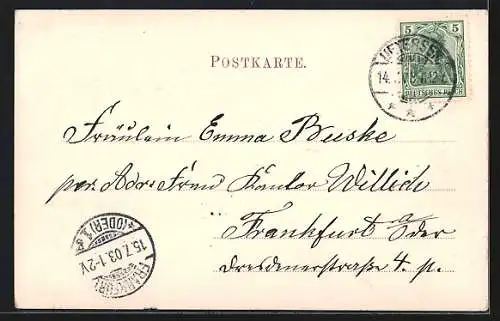 5 5
DEUTSCHES REICH
14.
POSTKARTE.
Fräulein Emma Buske
per. Adr. Frau Kantor Willich
Frankfurt a/Oder
Dresdenerstraße 4. p.
FRANKFURT
(ODER) 1
15.7.03.1-2V.